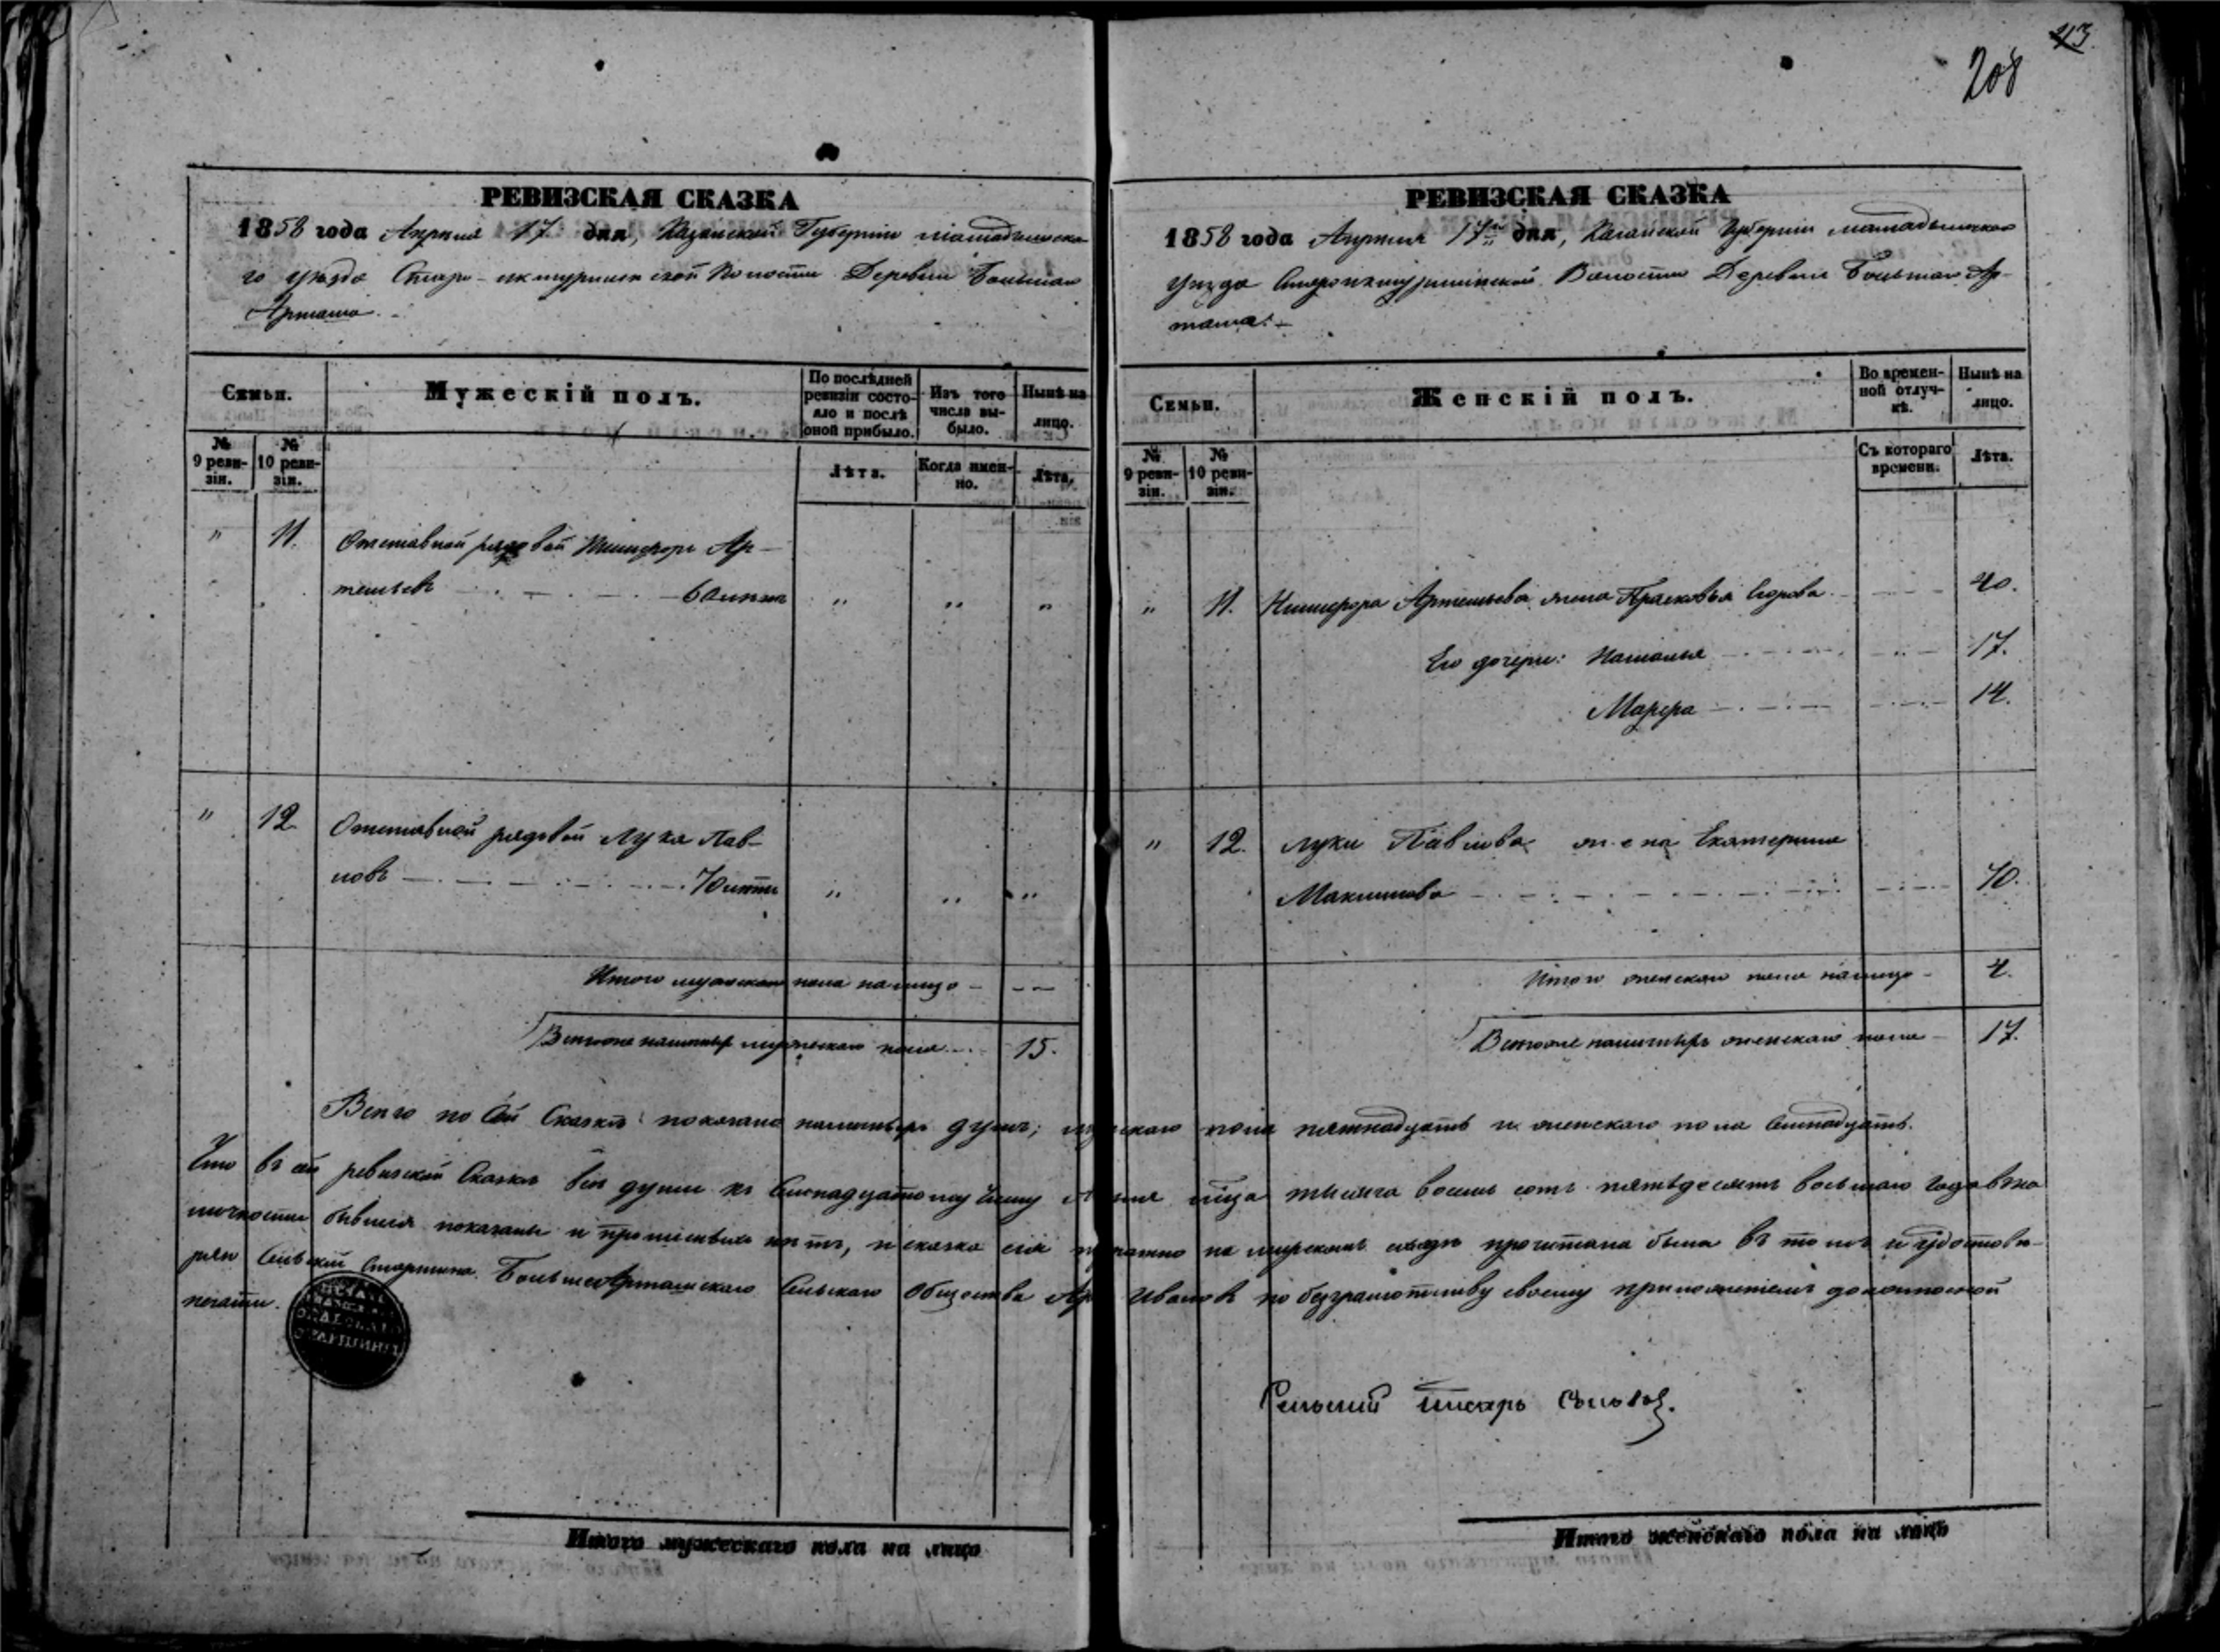 43.
208
РЕВИЗСКАЯ СКАЗКА
1858 года Апреля 17 дня, Казанской Губернии Мамадышска-
го уезда Старо- Волости Деревни Большаго
Арташа.
Семьи.
Мужескій полъ.
По послѣдней ревизіи состо-
яло и послѣ оной прибыло.
Изъ того числа вы-
было.
Нынѣ на лицо.
№ 9 реви-
зіи.
№ 10 реви-
зіи.
Лѣта.
Когда имен-
но.
Лѣта.
" 11. Отставной рядовой Никифоръ Ар-
темьевъ 60 лѣтъ " " "
" 12. Отставной рядовой Лука Пав-
ловъ 70 лѣтъ " " "
Итого мужескаго пола налицо - --
Вспомъ мужескаго пола 15.
РЕВИЗСКАЯ СКАЗКА
1858 года Апреля 17 дня, Казанской Губерніи Мамадышскаго
Уезда Волости Деревни Большаго Ар-
таша.
Семьи.
Женскій полъ.
Во времен-
ной отлуч-
кѣ.
Нынѣ на лицо.
№ 9 реви-
зіи.
№ 10 реви-
зіи.
Съ котораго времени.
Лѣта.
" 11. Никифора Артемьева жена Прасковья Егорова 40.
Его дочери: Наталья 17.
Марфа 14.
" 12. Луки Павлова жена Екатерина
Максимова 70.
Итого женскаго пола налицо - 4.
женскаго пола 17.
Всего по сей Сказкѣ показано душъ; мужскаго пола пятнадцать и женскаго пола семнадцать.
Что въ сей ревизской Сказкѣ все души къ семнадцатому числу Апреля м-ца тысяча восемь сотъ пятьдесятъ восьмаго года въ на
личности бывшия показаны и нетъ, и сказка сия на мирскомъ сходе прочитана была въ томъ и удостовѣ-
ряю Сельскій Старшина Большеарташскаго Сельскаго Общества Ивановъ по безграмотству своему приложеніемъ должностной
печати.
Сельский Писарь
Итого мужескаго пола на лицо
Итого женскаго пола на лицо